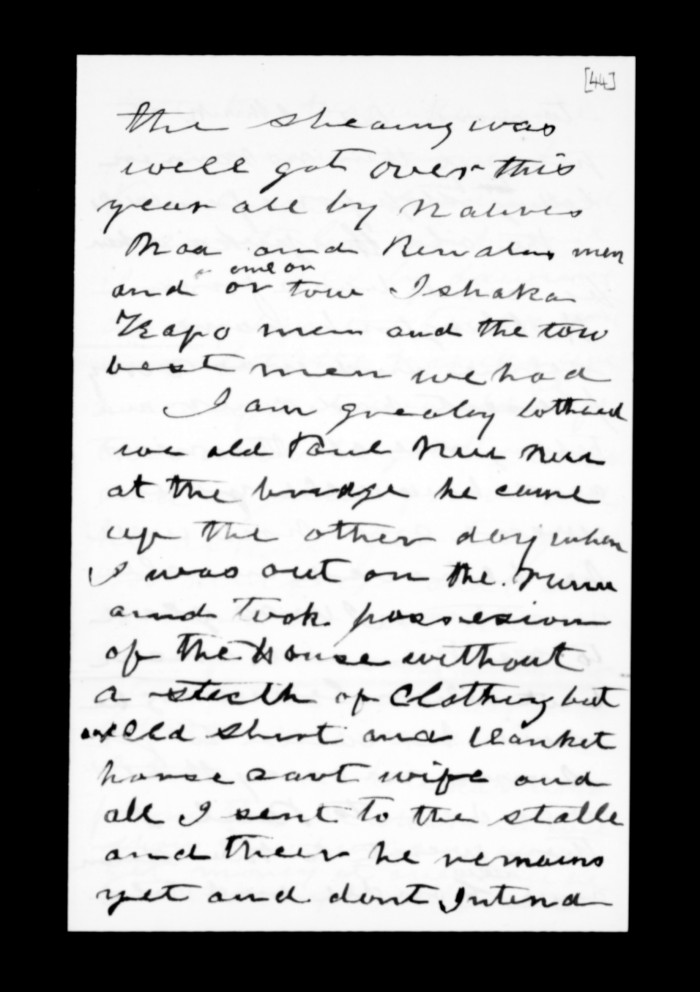 [44]
the shearing was
well got over this
year all by Natives
Moa and Renatas men
one or
and or tow Ishaka
men and the tow
best men we had
I am greatly bothued
we old Paul
at the bridge he came
up the other day when
I was out on the runn
and took possession
of the House without
a stecth of Clothing but
old shirt and blanket
horse cart wife and
all I sent to the stalle
and theer he remains
yet and dont Intend